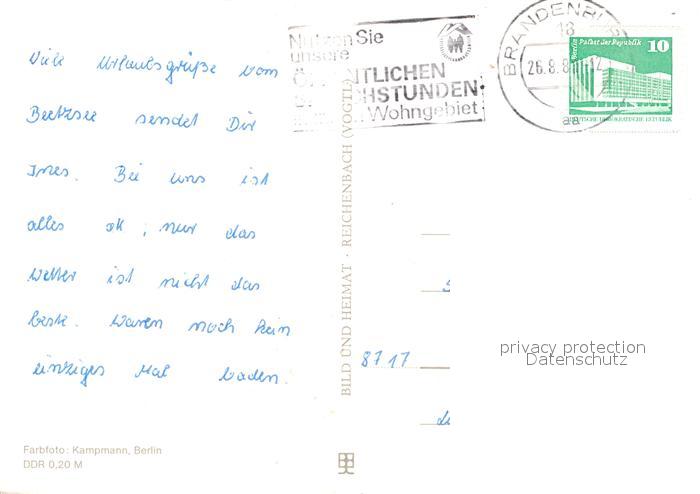 Viele Urlaubsgrüße vom
Beetzsee sendet Dir
Ines. Bei uns ist
alles ok, nur das
Wetter ist nicht das
beste. Waren noch kein
einziges Mal baden.
Farbfoto: Kampmann, Berlin
DDR 0,20 M
BILD UND HEIMAT · REICHENBACH (VOGTL)
Nutzen Sie
unsere
ÖFFENTLICHEN
SPRECHSTUNDEN
Wohngebiet
BRANDENBURG
18
26.8.8 -12
aa
Berlin Palast der Republik
10
DEUTSCHE DEMOKRATISCHE REPUBLIK
8717
privacy protection
Datenschutz